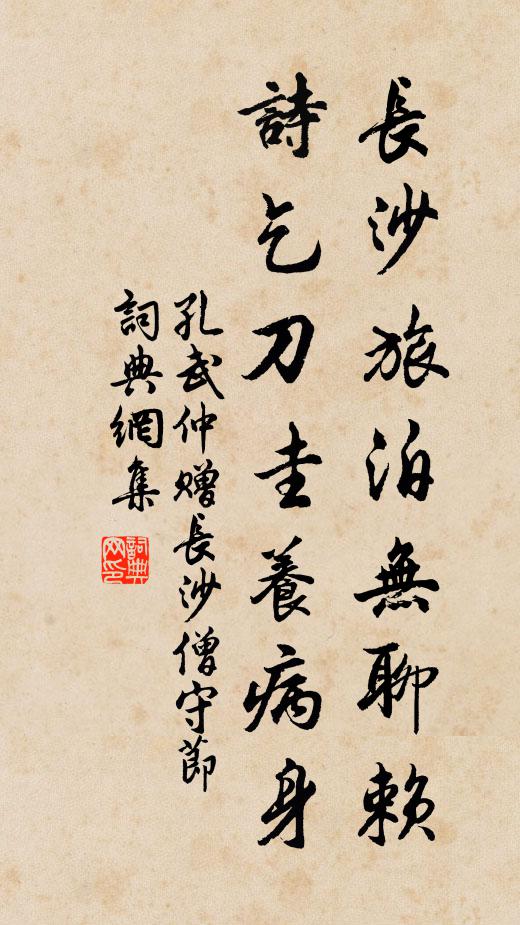 長沙旅泊無聊賴
詩乞刀圭養病身
孔武仲贈長沙僧守節
詞典網集
詞典網印